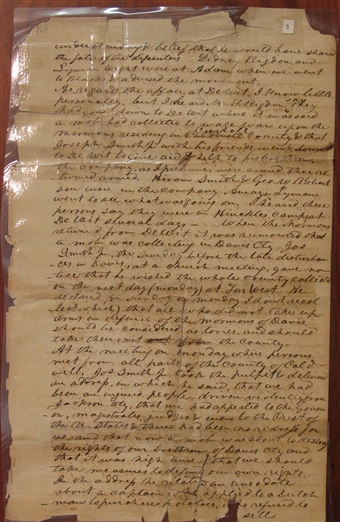 3
understanding & belief that he would have shared
the fate of the dissenters. Sidney Rigdon and
Lyman Wight were at Adam when we went
to Benson's & advised the movement.
As regards the affair at DeWit, I know little
personally, but I heard Mr. Rigdon say they
had gone down to DeWit where it was said
a mob had collected to wage war upon the
mormons residing in Carroll County & that
Joseph Smith Jr. with his friends went down
to DeWit to give aid & help to his brethren.
The company, as I presume, were armed they re-
turned armed. Hiram Smith & Geo. W. Robin-
son were in the company. Amasa Lyman
went to see what was going on. I heard these
persons say they were in Hinckle's camp at
DeWit several days — When the mormons
returned from DeWit it was rumored that
a mob was collecting in Davis Cty. Jos.
Smith Jr., the Sunday before the late disturban-
ces in Davis, at a church meeting, gave no-
tice that he wished the whole County collected
on the next day (monday) at Far West. He
declared, on sunday or monday I don't recol-
lect which, that all who did not take up
arms in defence of the mormons of Davis
should be considered as tories, and should
take their exit from the County
At the meeting on monday, where persons
met from all parts of the County of Cald-
well, Jos. Smith Jr. took the pulpit & delivered
an address, in which he said, that we had
been an injured people, driven violently from
Jackson Cty, that we had appealed to the Govern-
or, magistrates, judges & even to the Pres. of
the U. States & there had been no redress for
us and that now a mob was about to destroy
the rights of our brethren of Davis Cty and
that it was high time that we should
take measures to defend our own rights.
In the address he related an anecdote
about a captain who applied to a Dutch
man to purchase potatoes, who refused to
sell